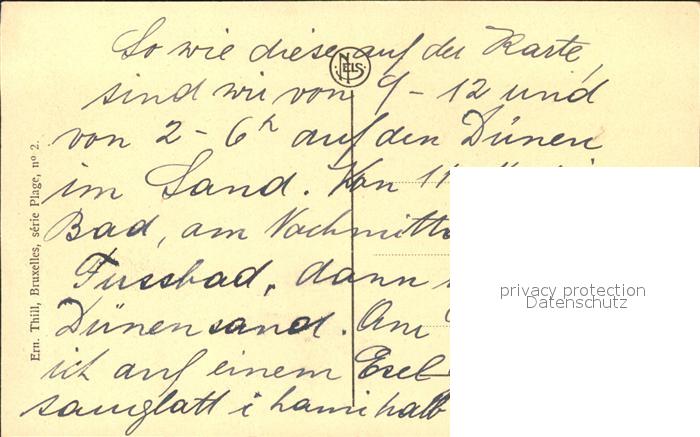 So wie diese auf der Karte,
sind wir von 9 - 12 und
von 2 - 6 h auf den Dünen
im Sand. Von 11
Bad, am Nachmitt
Fussbad, dann
Dünensand. Am
ich auf einem Esel
sauglatt i
NELS
Ern. Thill, Bruxelles, série Plage, nº 2.
privacy protection
Datenschutz